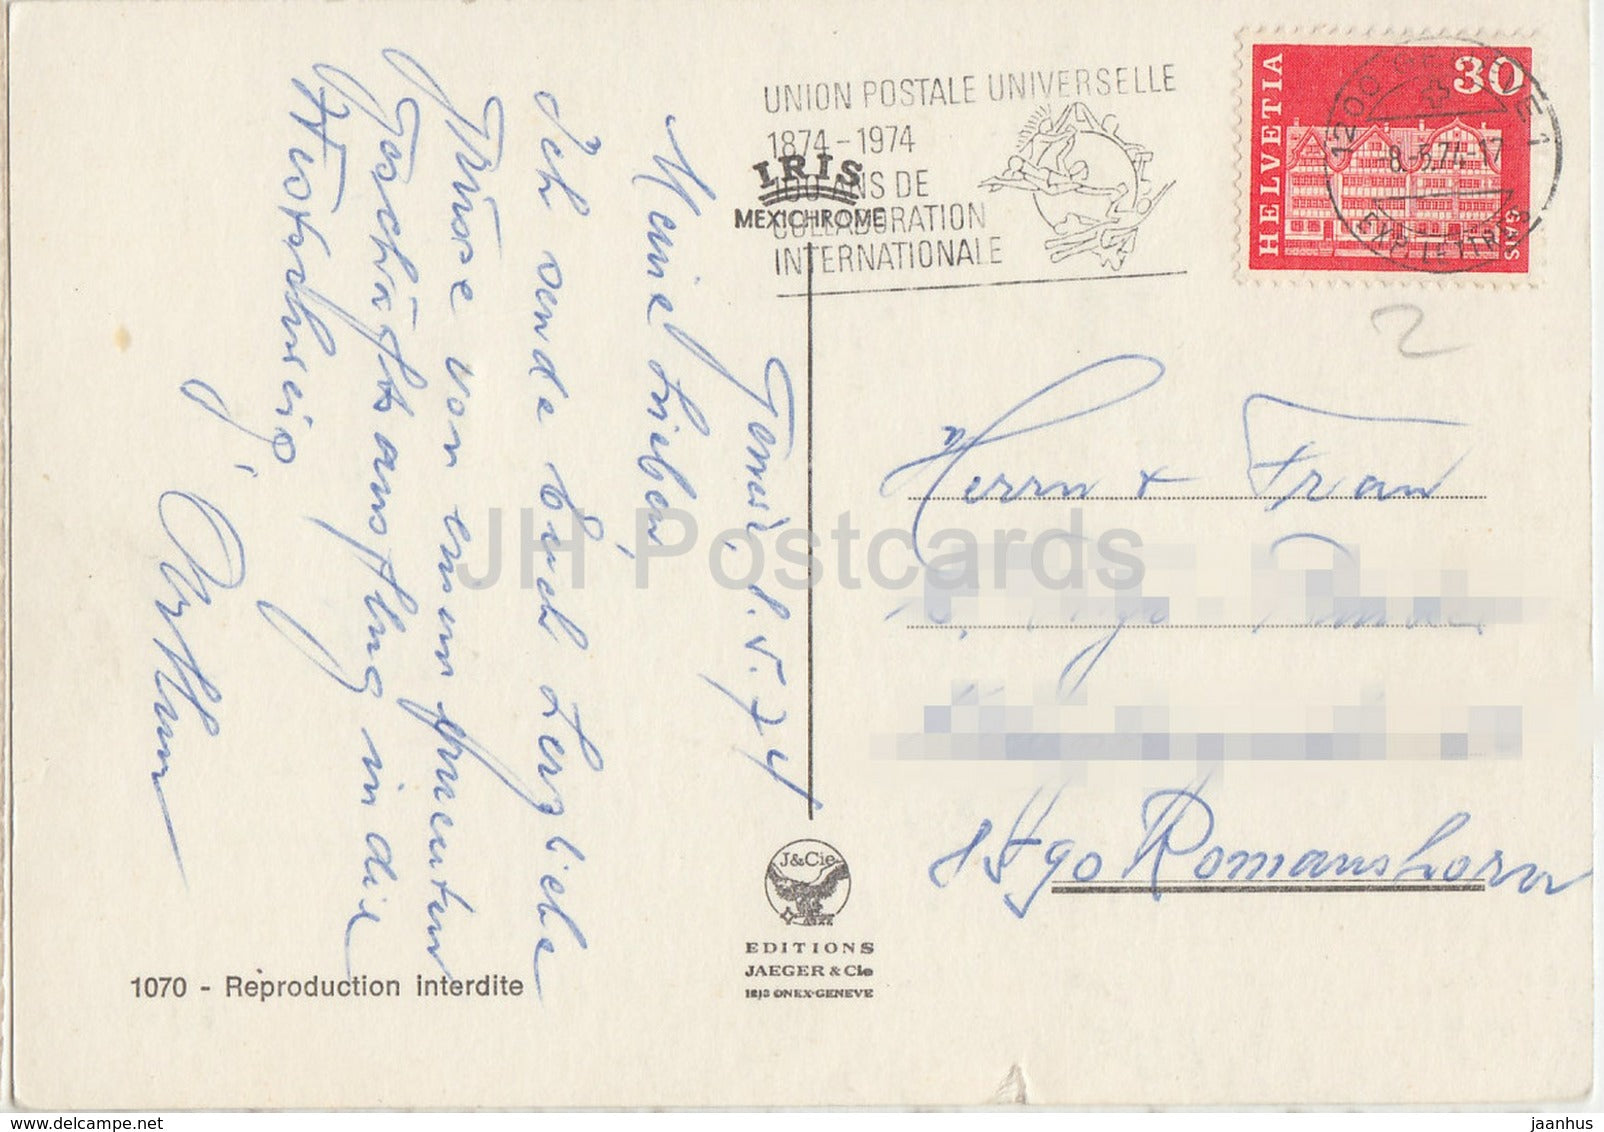 UNION POSTALE UNIVERSELLE
1874-1974
100 ANS DE
COLLABORATION
INTERNATIONALE
IRIS
MEXICHROME
HELVETIA
30
GAIS
1200 GENÈVE 1
-8.-5.74-17
EXP. LETTRES
2
Genève, 8.5.74
Meine Lieben,
Ich sende Euch herzliche
Grüsse von einem
Geschäftsausflug in die
Westschweiz
Herrn + Frau
Romanshorn
JH Postcards
J&Cie
EDITIONS
JAEGER & Cie
1213 ONEX-GENEVE
1070 - Reproduction interdite
www.delcampe.net
jaanhus